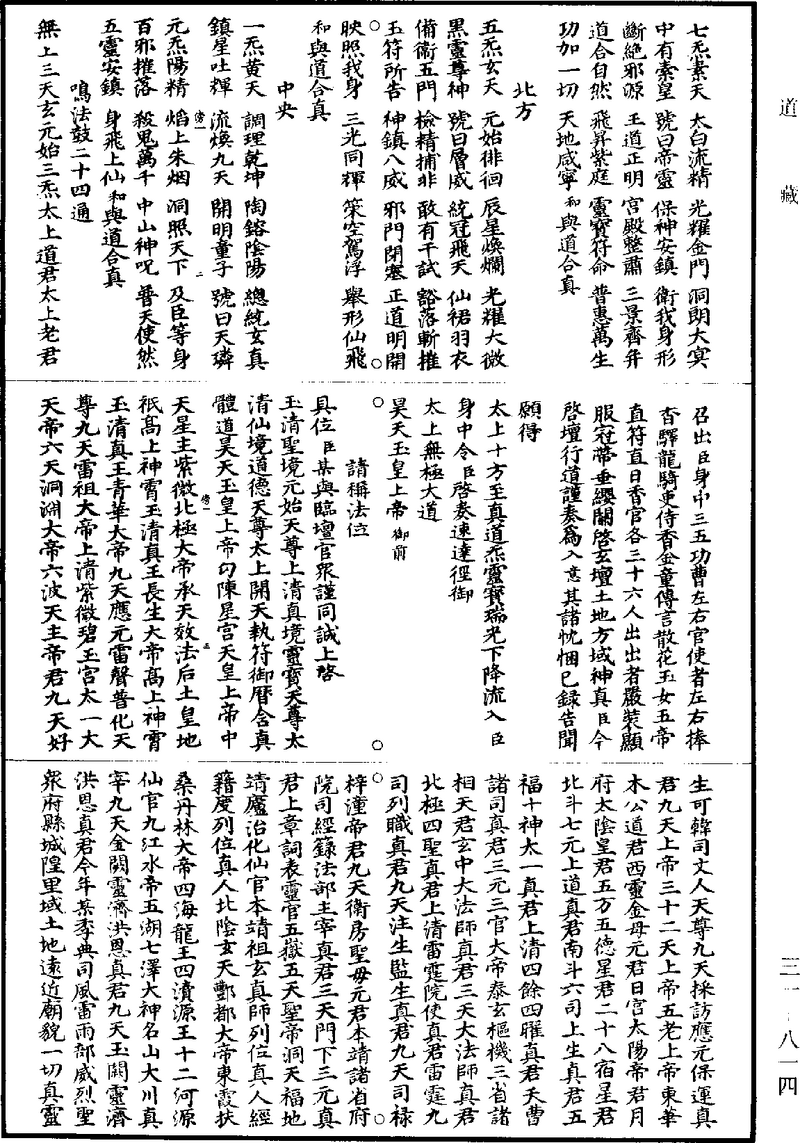 道藏
三一·八一四
七炁素天　太白流精　光耀金門　洞朗大宾
中有素皇　號曰帝靈　保神安鎮　衛我身形
斷絶邪源　王道正明　宫殿整肅　三景齊并
道合自然　飛昇紫庭　靈寶符命　普惠萬生
功加一切　天地咸寧　和與道合真
北方
五炁玄天　元始徘徊　辰星煥爛　光耀大微
黑靈尊神　號曰層威　統冠飛天　仙裙羽衣
備衛五門　檢精捕非　敢有干試　豁落斬摧
玉符所告　神鎮八威　邪門閉塞　正道明開
映照我身　三光同輝　策空駕浮　舉形仙飛
和與道合真
中央
一炁黄天　調理乾坤　陶鎔陰陽　總統玄真
鎮星吐輝　流煥九天　開明童子　號曰天璘
元炁陽精　焰上朱烟　洞照天下　及臣等身
百邪摧落　殺鬼萬千　中山神呪　普天使然
五靈安鎮　身飛上仙　和與道合真
鳴法鼓二十四通
無上三天玄元始三炁太上道君太上老君
召出臣身中三五功曹左右官使者左右捧
香驛龍騎吏侍香金童傳言散花玉女五帝
直符直日香官各三十六人出出者嚴裝顯
服冠帶垂纓關啓玄壇土地方域神真臣今
啓壇行道謹奏爲入意其諸忱悃已録告聞
願得
太上十方至真道炁靈寶瑞光下降流入臣
身中令臣啓奏速達徑御
太上無極大道
昊天玉皇上帝御前
請稱法位
具位臣某與臨壇官衆謹同誠上啓
玉清聖境元始天尊上清真境靈寶天尊太
清仙境道德天尊太上開天執符御曆含真
體道昊天玉皇上帝勾陳星宫天皇上帝中
天星主紫微北極大帝承天效法后土皇地
祇高上神霄玉清真王長生大帝高上神霄
玉清真王青華大帝九天應元雷聲普化天
尊九天雷祖大帝上清紫微碧玉宫太一大
天帝六天洞淵大帝六波天主帝君九天好
生可韓司丈人天尊九天採訪應元保運真
君九天上帝三十二天上帝五老上帝東華
木公道君西靈金母元君日宫太陽帝君月
府太陰皇君五方五德星君二十八宿星君
北斗七元上道真君南斗六司上生真君五
福十神太一真君上清四餘四曜真君天曹
諸司真君三元三官大帝泰玄樞機三省諸
相天君玄中大法師真君三天大法師真君
北極四聖真君上清雷霆院使真君雷霆九
司列職真君九天注生監生真君九天司禄
梓潼帝君九天衛房聖母元君本靖諸省府
院司經籙法部主宰真君三天門下三元真
君上章詞表靈官五嶽五天聖帝洞天福地
靖廬治化仙官本靖祖玄真師列位真人經
籍度列位真人北陰玄天酆都大帝東霞扶
桑丹林大帝四海龍王四瀆源王十二河源
仙官九江水帝五湖七澤大神名山大川真
宰九天金闕靈濟洪恩真君九天玉闕靈濟
洪恩真君今年某季典司風雷雨部威烈聖
衆府縣城隍里域土地遠近廟貌一切真靈